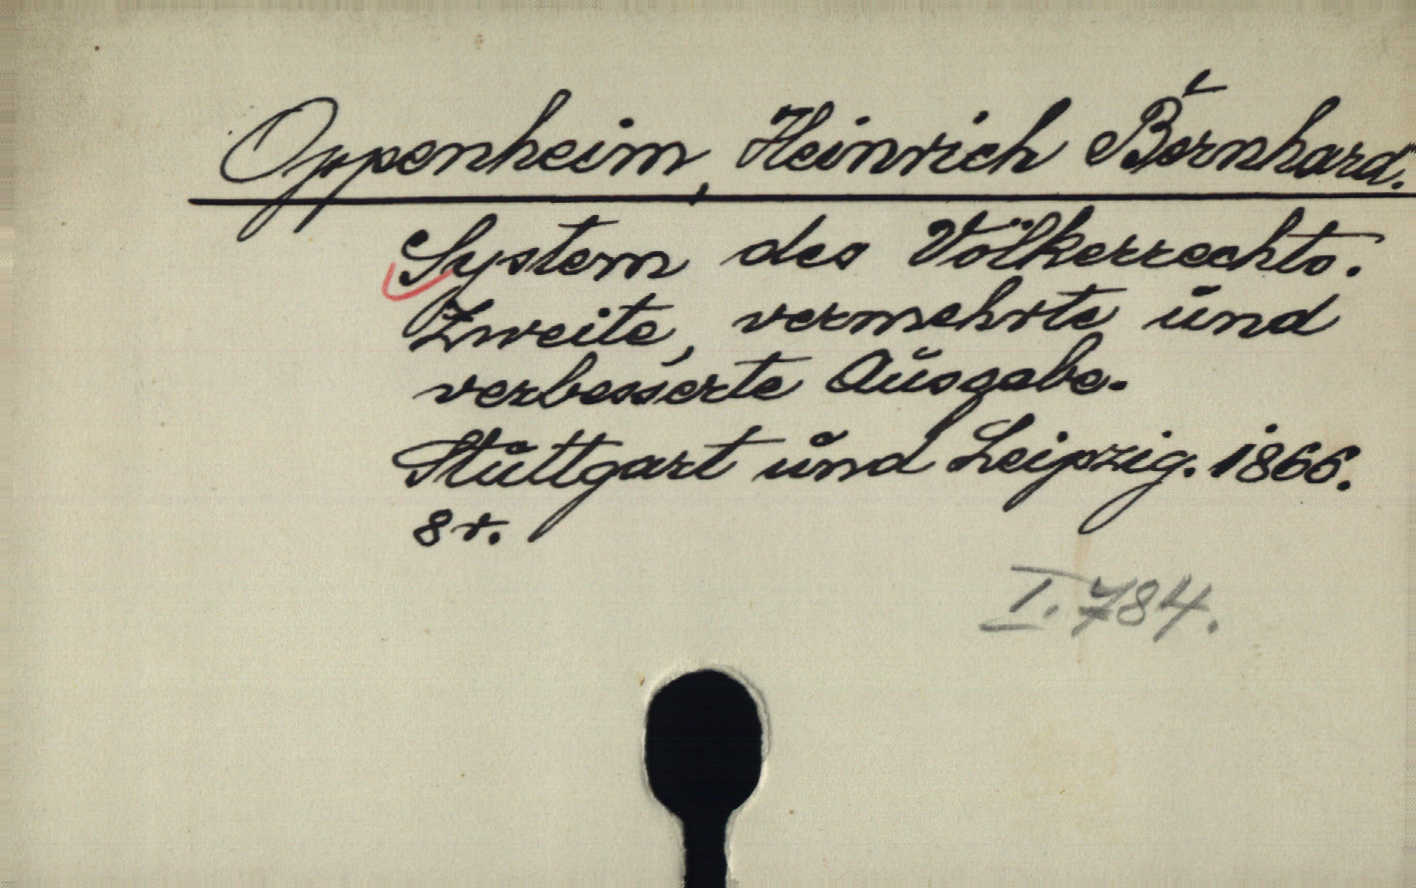 Oppenheim, Heinrich Bernhard.
System des Völkerrechts.
Zweite, vermehrte und
verbesserte Ausgabe.
Stuttgart und Leipzig. 1866.
8v.
I. 784.